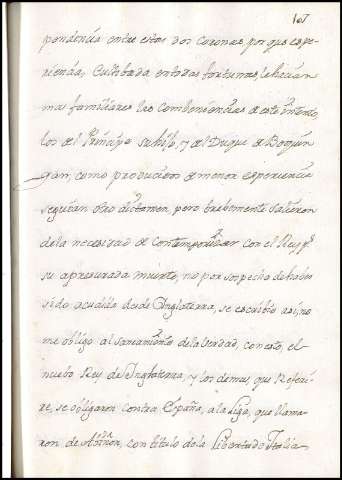 107
pondencia entre estas dos Coronas, por que espe-
riencia, Cultibada entodas fortunas, le hacian
mas familiares las Combeniencias de este intento,
los del Principe su hijo, y del Duque de
como produccion de menor esperiencia
seguian otro dictamen, pero brebemente salieron
dela necesidad de Contemporizar con el Rey, pr
su apresurada muerte, no por sospecha de haber
sido acudida desde Inglaterra, se escribio asi, no
me obligo al saneamiento dela berdad, con esto, el
nuebo Rey de Inglaterra, y los demas, que Referi-
re, se obligaron contra España, a la Liga, que llama-
ron de con titulo dela libertad de Italia